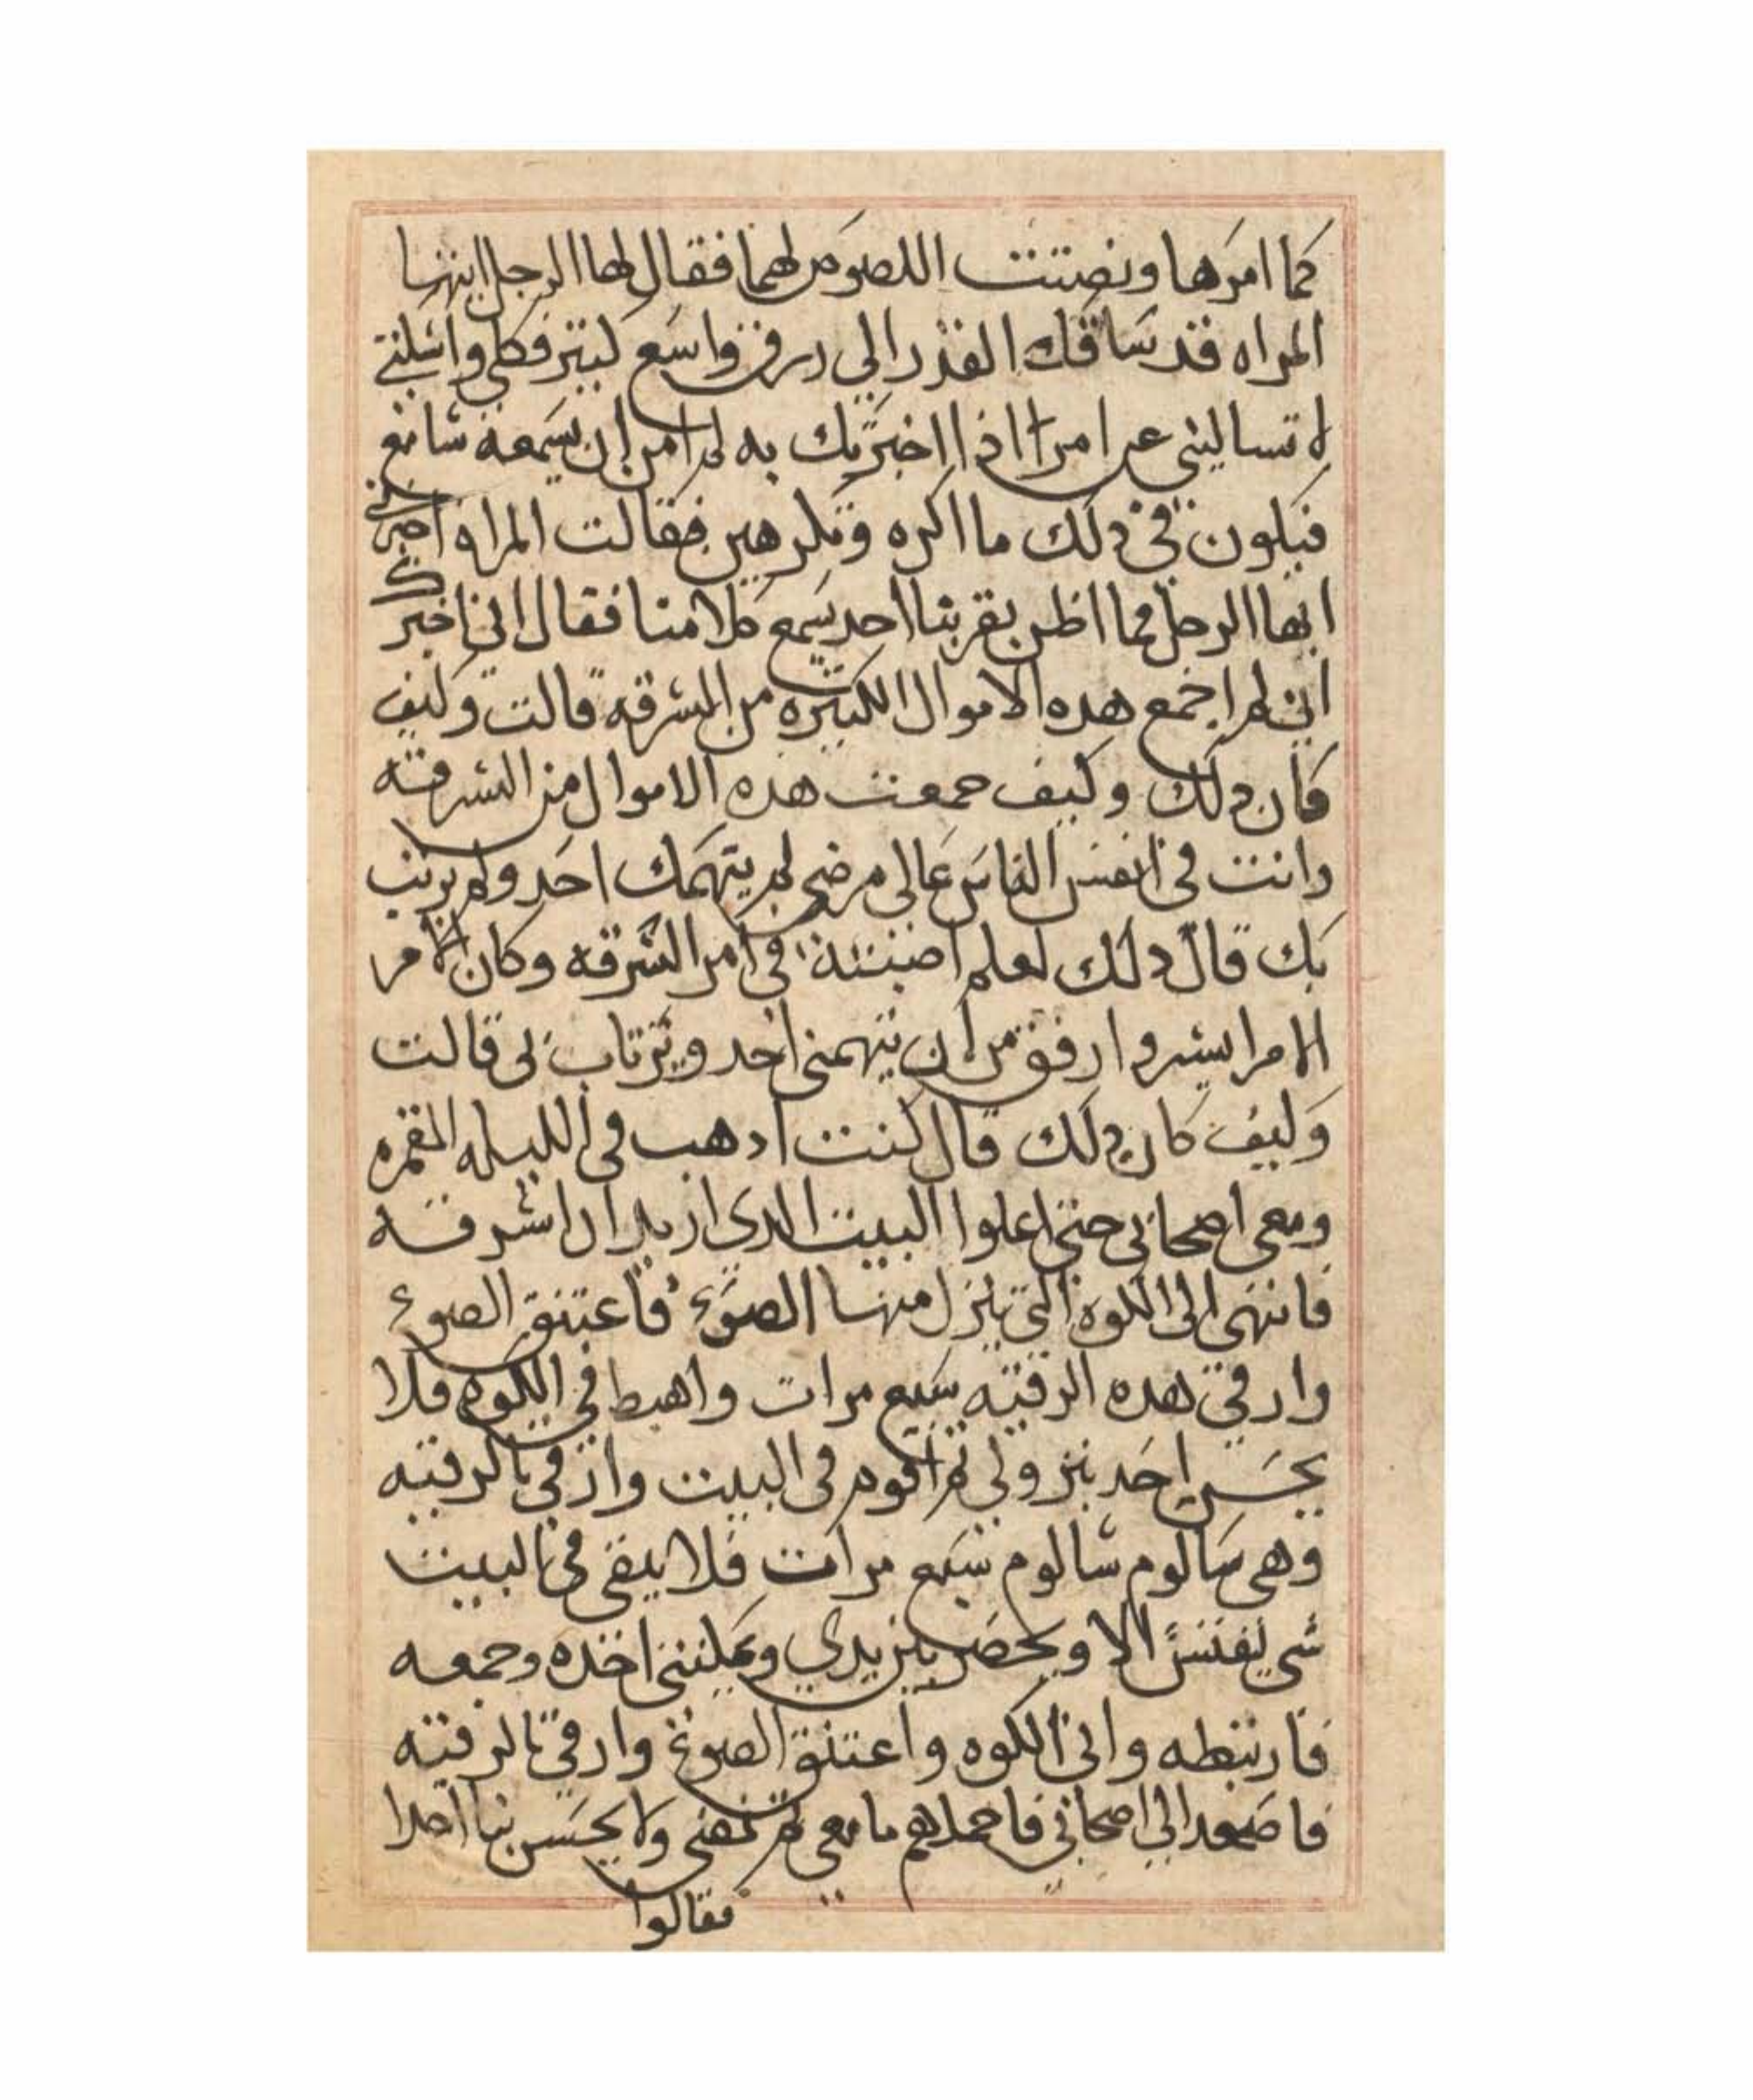 كما امرها ونصتت اللصوص لهما فقال لها الرجل ايتها
المراه قد ساقك القدر الي رزق واسع كبير فكلي واسكتي
لا تساليني عن امرا اذا اخبرتك به لم امن ان يسمعه سامع
فيكون في ذلك ما اكره وتكرهين فقالت المراه اخبرني
ايها الرجل فما اظن بقربنا احد يسمع كلامنا فقال اني اخبرك
اني لم اجمع هده الاموال الكثيره من السرقه قالت وكيف
كان دلك وكيف جمعت هده الاموال من السرقه
وانت في انفس الناس عالي مرضي لم يتهمك احد ولم يرتب
بك قال دلك لعلم اصبته في امر السرقه وكان الامر
الامر ايسر وارفق من ان يتهمني احد ويرتاب بي قالت
وكيف كان دلك قال كنت ادهب في الليله المقمره
ومعي اصحابي حتي اعلوا البيت الدي اريد ان اسرقه
فانتهي الي الكوه التي ينزل منها الضوء فاعتنق الضوء
وارقي هده الرقيه سبع مرات واهبط في الكوه فلا
يحس احد بنزولي ثم اقوم في البيت وارقي بالرقيه
وهي شالوم شالوم سبع مرات فلا يبقي في البيت
شي نفيس الا ويحضر بين يدي ويمكنني اخذه وجمعه
فاربطه واتي الكوه واعتنق الضوء وارقي بالرقيه
فاصعد الي اصحابي فاحملهم ما معي ثم نمضي ولا يحس بنا احدا
فقالوا